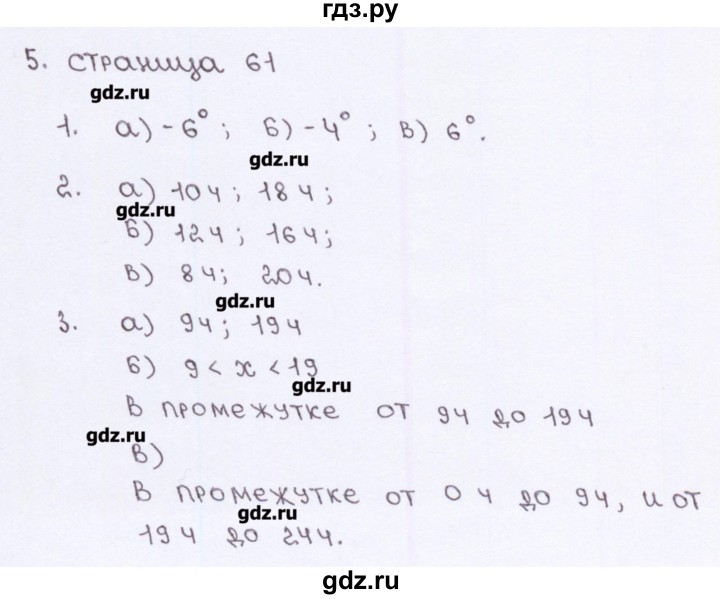 гдз.ру
5. страница 61
gdz.ru
1. а) -6°; б) -4°; в) 6°.
gdz.ru
2. а) 10 ч; 18 ч;
gdz.ru
б) 12 ч; 16 ч;
в) 8 ч; 20 ч.
gdz.ru
3. а) 9 ч; 19 ч
б) 9 < x < 19
gdz.ru
в промежутке от 9 ч до 19 ч
gdz.ru
в)
в промежутке от 0 ч до 9 ч, и от
gdz.ru
19 ч до 24 ч.
gdz.ru